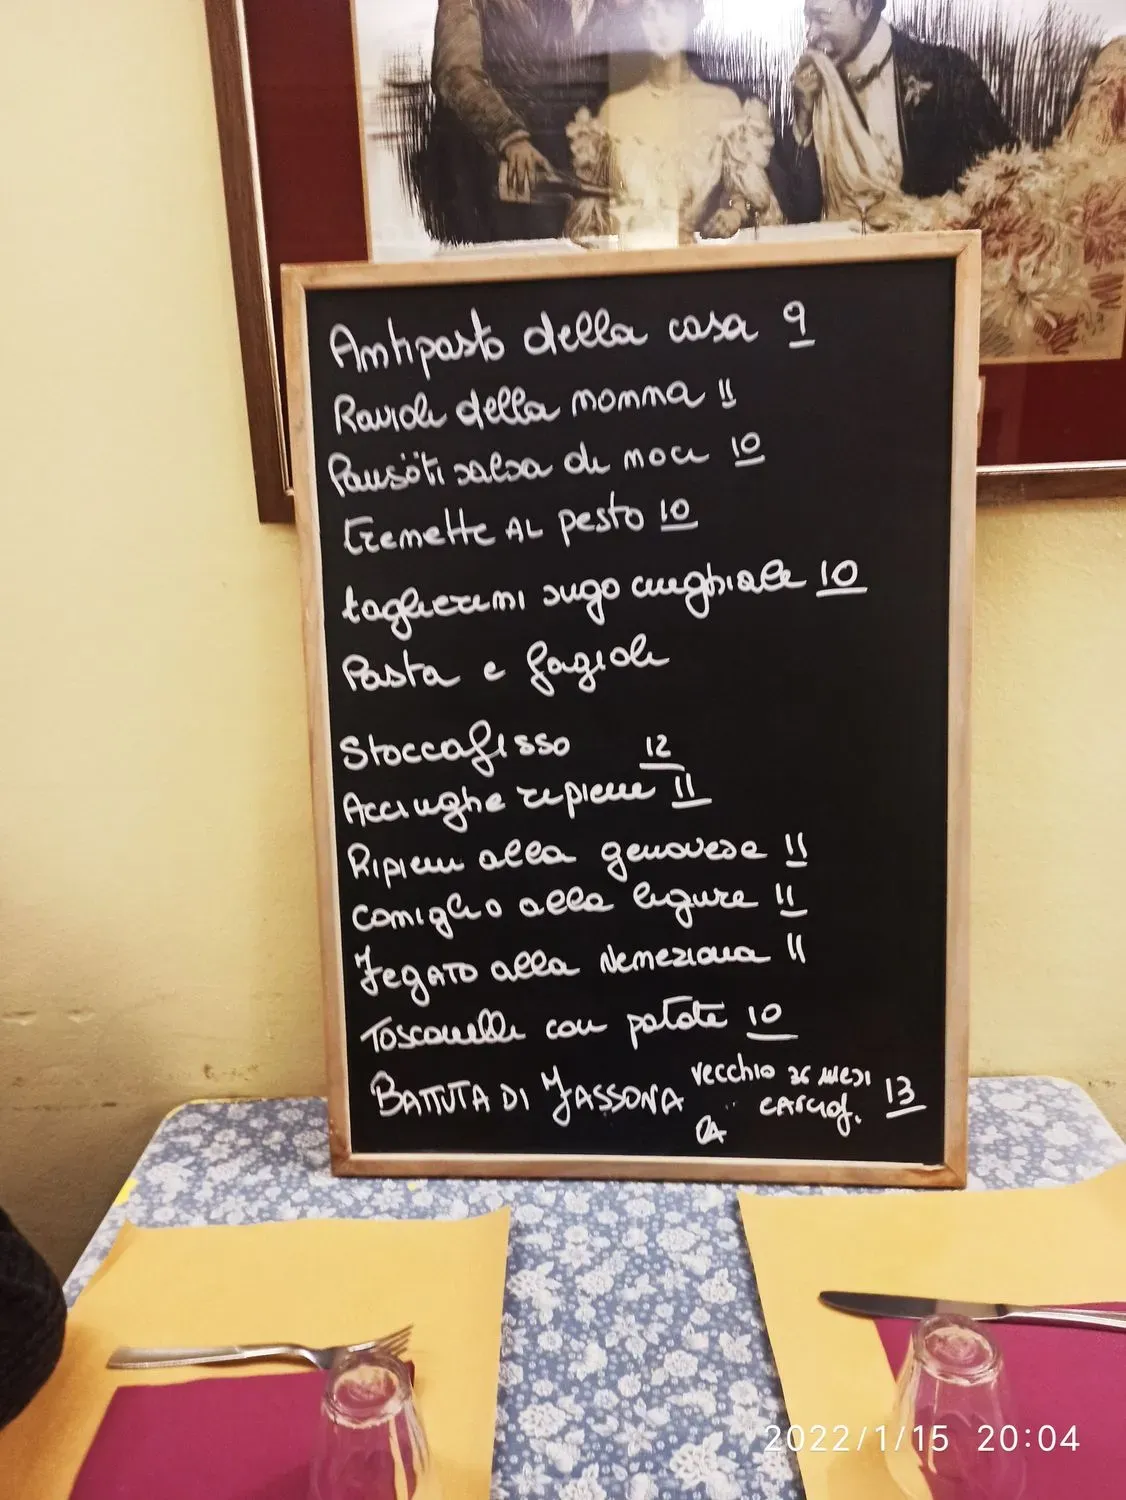 Antipasto della casa 9
Ravioli della nonna 11
Pansöti salsa di noci 10
Trenette AL pesto 10
taglierini sugo cinghiale 10
Pasta e fagioli
Stoccafisso 12
Acciughe ripiene 11
Ripieni alla genovese 11
Coniglio alla ligure 11
Fegato alla Veneziana 11
Toscanelli con patate 10
BATTUTA DI FASSONA vecchio 36 mesi
carciof. 13
2022/1/15 20:04